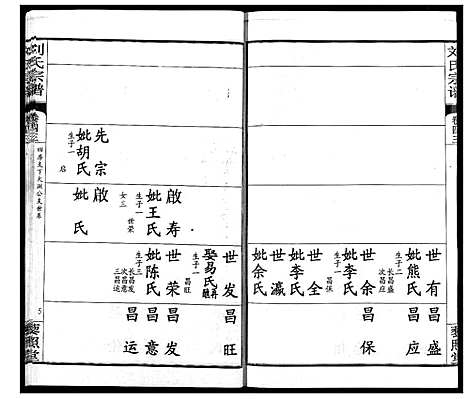 刘氏宗谱
卷四三
世有
妣熊氏
生子二
长昌盛
次昌应
世余
妣李氏
生子一
昌保
世全
妣李氏
世瀛
妣余氏
昌盛
昌应
昌保
藜照堂
刘氏宗谱
卷四三
先宗
妣胡氏
生子一
启
啟寿
妣王氏
生子一
世荣
女三
啟
妣 氏
世发
娶易氏
生子一
昌旺
世荣
妣陈氏
生子三
长昌发
次昌意
三昌运
昌旺
昌发
昌意
昌运
5
藜照堂